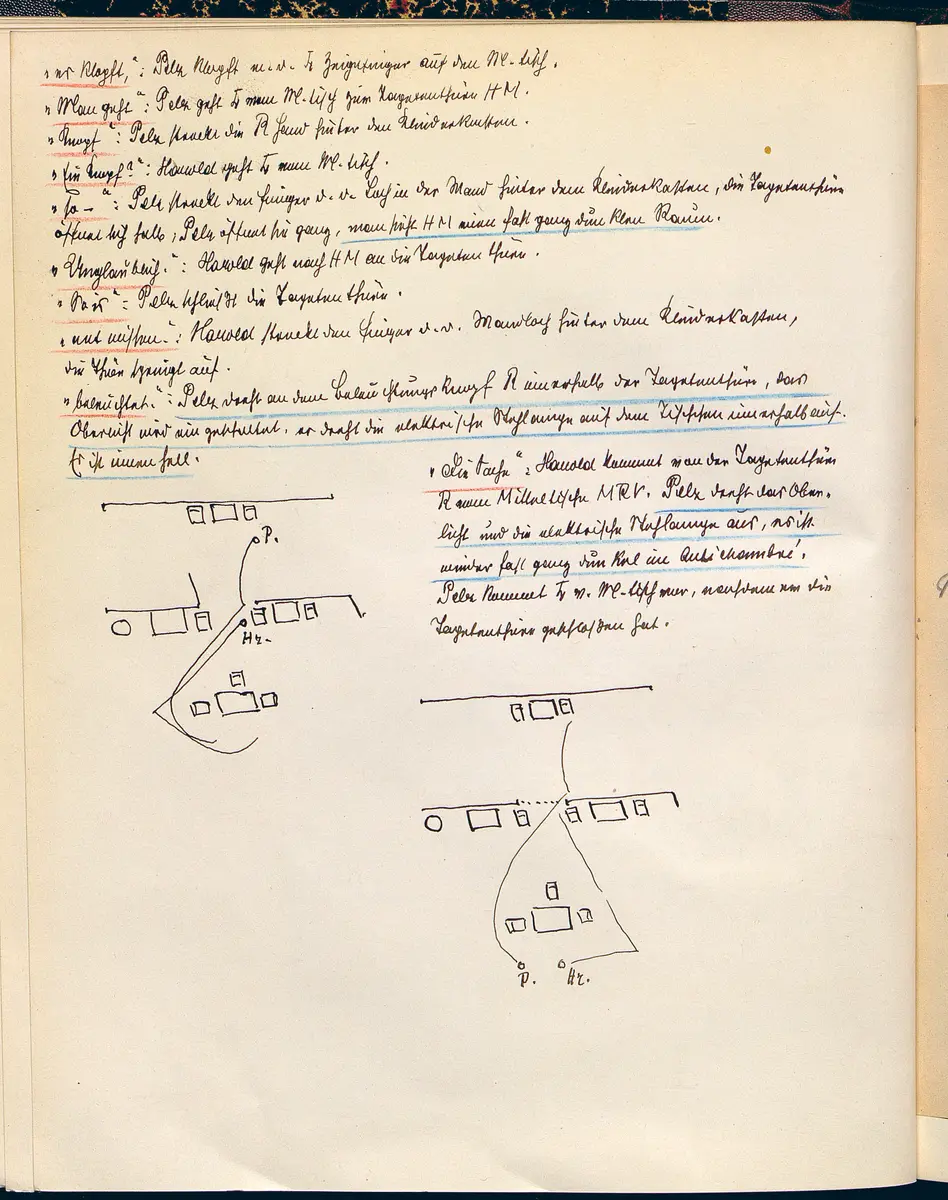 „er klopft,“: Pelz klopft m. d. L Zeigefinger auf den M-tisch.
„Man geht“: Pelz geht L vom M-tisch zur Tapetenthüre HM.
„Knopf“: Pelz streckt die R Hand hinter den Kleiderkasten.
„Ein Knopf?“: Harold geht L vom M-tisch.
„So –“: Pelz streckt den Finger d. d. Loch in der Wand hinter dem Kleiderkasten, die Tapetenthüre
öffnet sich halb; Pelz öffnet sie ganz, man sieht HM einen fast ganz dunklen Raum.
„Unglaublich.“: Harold geht nach HM an die Tapetenthüre.
„So is“: Pelz schließt die Tapetenthüre.
Harold streckt den Finger d. d. Wandloch hinter dem Kleiderkasten,
die Thüre springt auf.
„beleuchtet.“: Pelz dreht an dem Beleuchtungsknopf R innerhalb der Tapetenthüre, das
Oberlicht wird eingeschaltet. er dreht die elektrische Stehlampe auf dem Tischchen innerhalb auf.
Es ist innen hell.
„Die Sache“: Harold kommt von der Tapetenthüre
R vom Mitteltische MRV. Pelz dreht das Ober-
licht und die elektrische Stehlampe aus, es ist
wieder fast ganz dunkel im Antichambre.
Pelz kommt L v. M-tisch vor, nachdem er die
Tapetenthüre geschlossen hat.
P.
Hr.
P. Hr.